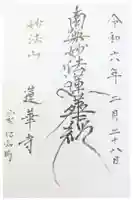 令和六年二月二十八日
南無妙法蓮華経
妙法山
蓮華寺